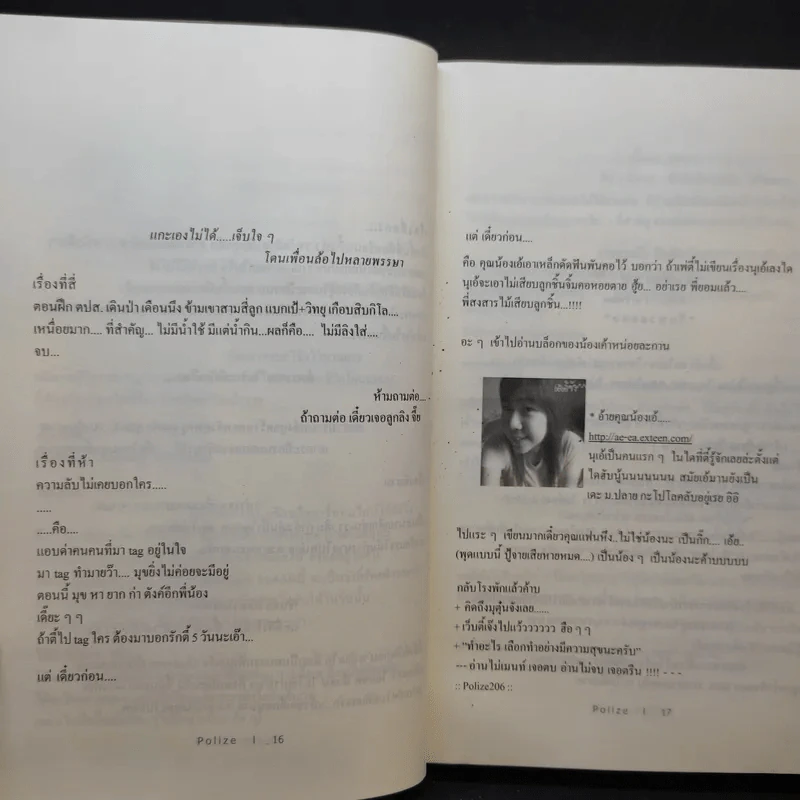 แกะเองไม่ได้.....เจ็บใจ ๆ
โดนเพื่อนล้อไปหลายพรรษา
เรื่องที่สี่
ตอนฝึก ตปส. เดินป่า เดือนนึง ข้ามเขาสามสี่ลูก แบกเป้+วิทยุ เกือบสิบกิโล....
เหนื่อยมาก.... ที่สำคัญ... ไม่มีน้ำใช้ มีแต่น้ำกิน...ผลก็คือ.... ไม่มีลิงใส่....
จบ...
ห้ามถามต่อ...
ถ้าถามต่อ เดี๋ยวเจอลูกลิง จี้ย
เรื่องที่ห้า
ความลับไม่เคยบอกใคร.....
.....
.....คือ....
แอบด่าคนคนที่มา tag อยู่ในใจ
มา tag ทำมายว๊า.... มุขยิ่งไม่ค่อยจะมีอยู่
ตอนนี้ มุข หา ยาก ก่า ตังค์อีกพี่น้อง
เดี๊ยะ ๆ ๆ
ถ้าตี๋ไป tag ใคร ต้องมาบอกรักตี๋ 5 วันนะเอ๊า...
แต่ เดี๋ยวก่อน....
Polize | 16
แต่ เดี๋ยวก่อน....
คือ คุณน้องเอ้เอาเหล็กดัดฟันพันคอไว้ บอกว่า ถ้าเฟ่ตี๋ไม่เขียนเรื่องนุเอ้เลงใด
นุเอ้จะเอาไม้เสียบลูกชิ้นจิ้มคอหอยตาย สู้ย... อย่าเรย พี่ยอมแล้ว....
พี่สงสารไม้เสียบลูกชิ้น...!!!!
อะ ๆ เข้าไปอ่านบล็อกของน้องเค้าหน่อยละกาน
* อ้ายคุณน้องเอ้.....
http://ae-ea.exteen.com/
นุเอ้เป็นคนแรก ๆ ในไดที่ตี๋รู้จักเลยล่ะตั้งแต่
ไดฮับนู้นนนนนนน สมัยเอ้มานยังเป็น
เดะ ม.ปลาย กะโปโลคลับอยู่เรย อิอิ
ไปแระ ๆ เขียนมากเดี๋ยวคุณแฟนหึง..ไม่ใช่น้องนะ เป็นกิ๊ก.... เอ้ย...
(พูดแบบนี้ ปู้จายเสียหายหมด....) เป็นน้อง ๆ เป็นน้องนะค้าบบบบบ
กลับโรงพักแล้วค้าบ
+ คิดถึงมุตุ๋นจังเลย......
+ เว็บตี๋เจ๊งไปแว้วววววว ฮือ ๆ ๆ
+ "ทำอะไร เลือกทำอย่างมีความสุขนะครับ"
--- อ่านไม่เมนท์ เจอตบ อ่านไม่จบ เจอตรีน !!!! - - -
:: Polize206 ::
Polize | 17